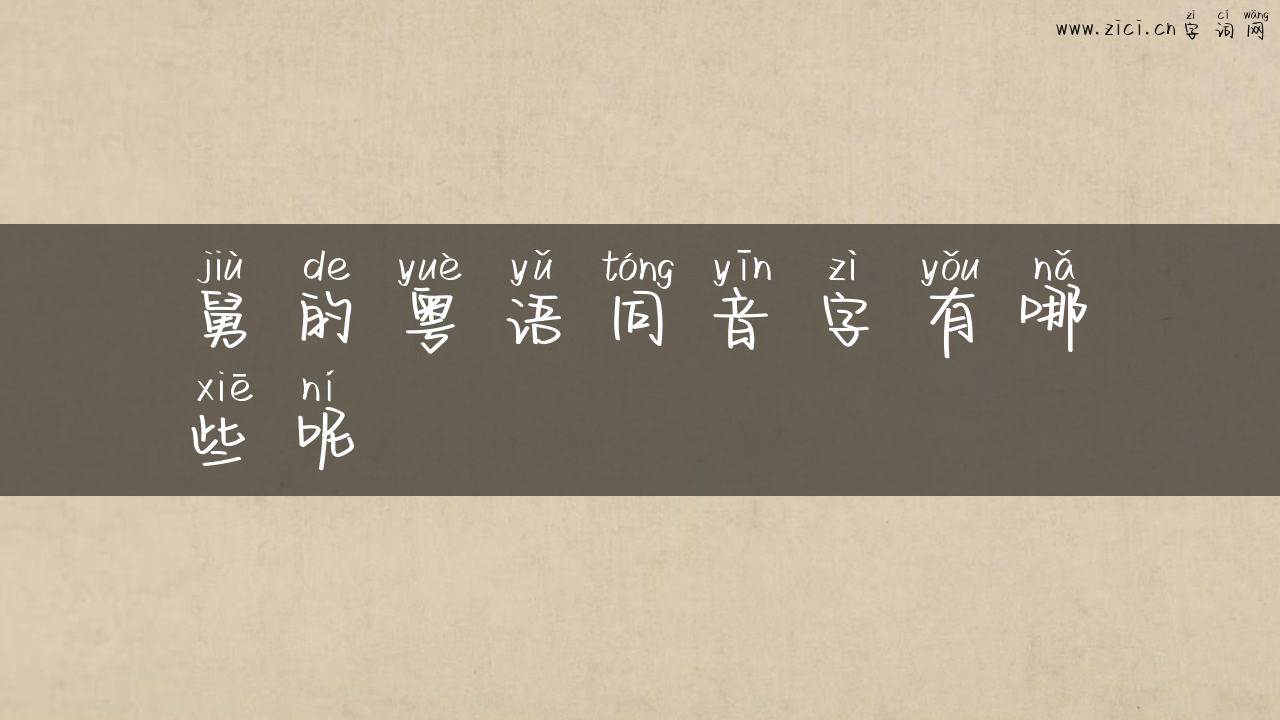 zì cí wǎng
www.zici.cn 字词网
jiù de yuè yǔ tóng yīn zì yǒu nǎ
舅的粤语同音字有哪
xiē ní
些呢